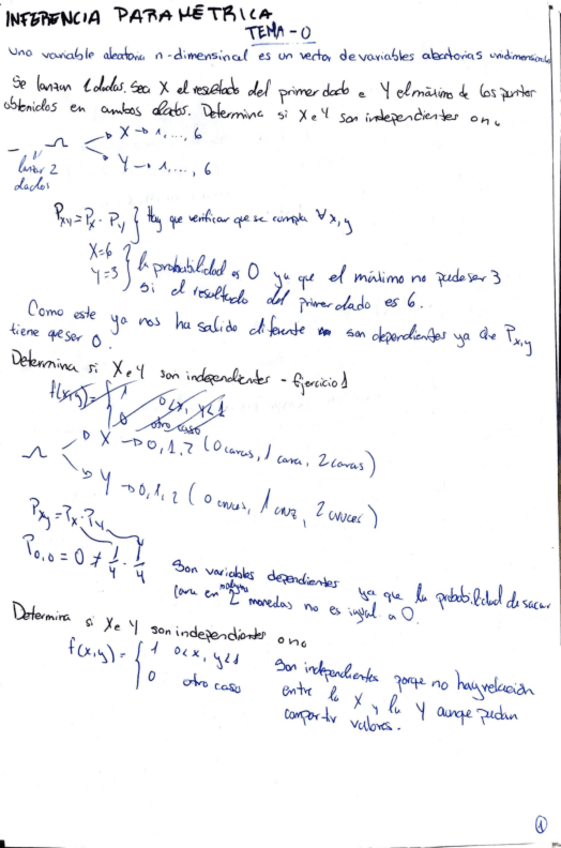 INFERENCIA PARAMETRICA
TEMA-0
Una variable aleatoria n-dimensinal es un vector de variables aleatorias unidimensionales
Se lanzan 2 dados. Sea X el resultado del primer dado e Y el máximo de los puntos
obtenidos en ambos dados. Determina si X e Y son independientes o no.
Ω → X → 1, ..., 6
→ Y → 1, ..., 6
lanzar 2
dados
Pxy = Px · Py } Hay que verificar que se cumpla ∀x,y
X=6
Y=3 } la probabilidad es 0 ya que el máximo no puede ser 3
si el resultado del primer dado es 6.
Como este ya nos ha salido diferente son dependientes ya que Px,y
tiene que ser 0.
Determina si X e Y son independientes - Ejercicio 1
f(x,y) = { 1 0<x, y<1
0 otro caso
Ω → X → 0,1,2 (0 caras, 1 cara, 2 caras)
→ Y → 0,1,2 (0 cruces, 1 cruz, 2 cruces)
Pxy = Px · Py
P0,0 = 0 ≠ 1/4 · 1/4
Son variables dependientes ya que la probabilidad de sacar
cara en ninguna 2 monedas no es igual a 0.
Determina si X e Y son independientes o no
f(x,y) = { 1 0<x, y<1
0 otro caso
Son independientes porque no hay relación
entre la X y la Y aunque puedan
compartir valores.
1